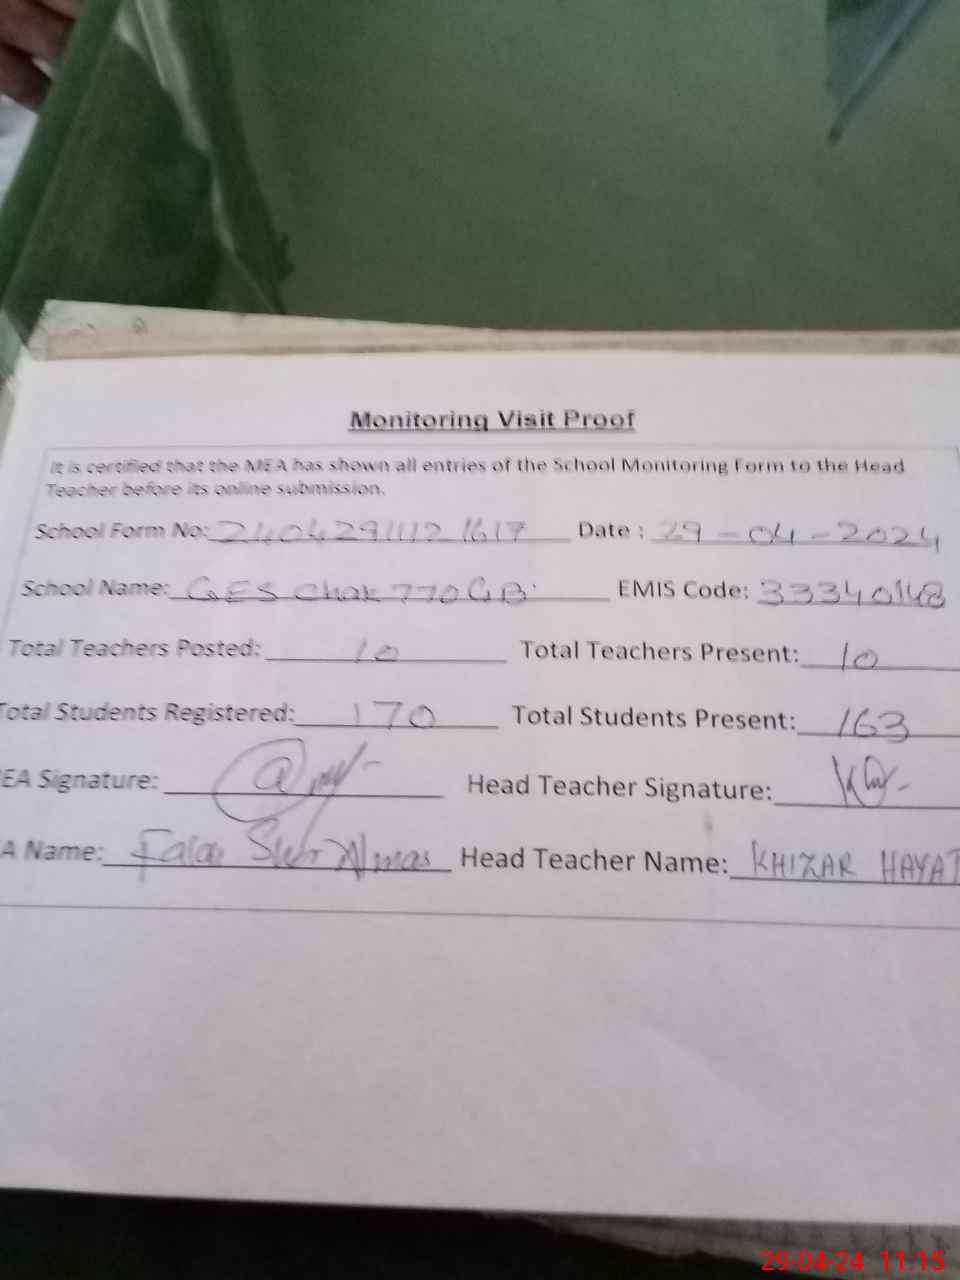 Monitoring Visit Proof
It is certified that the MEA has shown all entries of the School Monitoring Form to the Head
Teacher before its online submission.
School Form No: 2404291112 1617 Date : 29-04-2024
School Name: GES Chak 770 GB EMIS Code: 33340148
Total Teachers Posted: 10 Total Teachers Present: 10
Total Students Registered: 170 Total Students Present: 163
EA Signature: Head Teacher Signature:
A Name: Almas Head Teacher Name: KHIZAR HAYAT
29-04-24 11:15